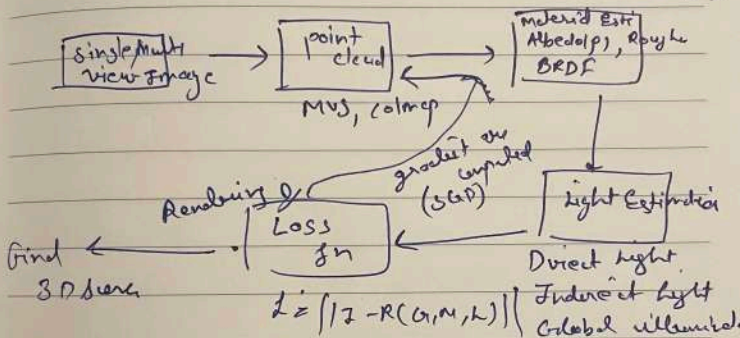 Single/Multi
view Image
point
cloud
MVS, Colmap
Material Esti
Albedo(ρ), Rough
BRDF
gradeit are
computed
(SGD)
Light Estimation
Direct Light
Indirect Light
Global illuminat
Rendering &
Loss
fn
L = ||I - R(G,M,L)||
Final
3D Scene